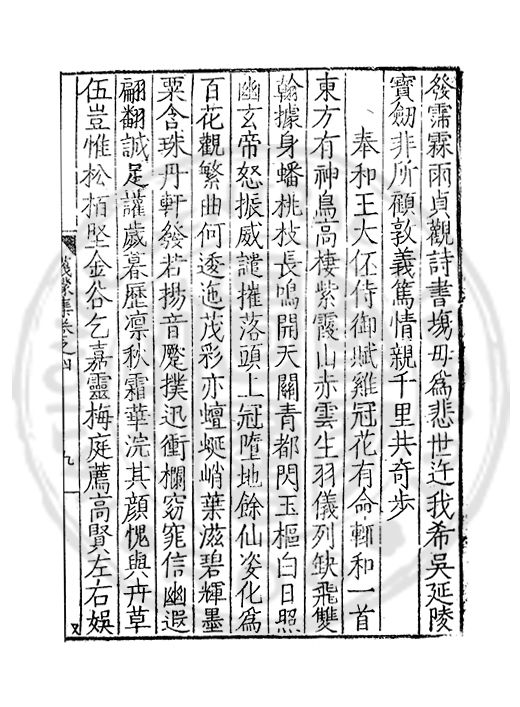 發霈霖兩貞觀詩書塲毋爲悲世迕我希吳延陵
寶劒非所顧敦義篤情親千里共奇步
奉和王大伾侍御賦雞冠花有命輙和一首
東方有神鳥高棲紫霞山赤雲生羽儀列缺飛雙
翰據身蟠桃枝長鳴開天關青都閃玉樞白日照
幽玄帝怒振威譴摧落頭上冠墮地餘仙姿化爲
百花觀繁曲何逶迤茂彩亦蟺蜒峭葉滋碧輝墨
粟含珠丹軒發若揚音壓撲迅衝欄窈窕信幽遐
翩翻誠足讙歲暮歷凛秋霜華浣其顔愧與卉草
伍豈惟松栢堅金谷乞嘉靈梅庭薦高賢左右娛
集卷之四
九